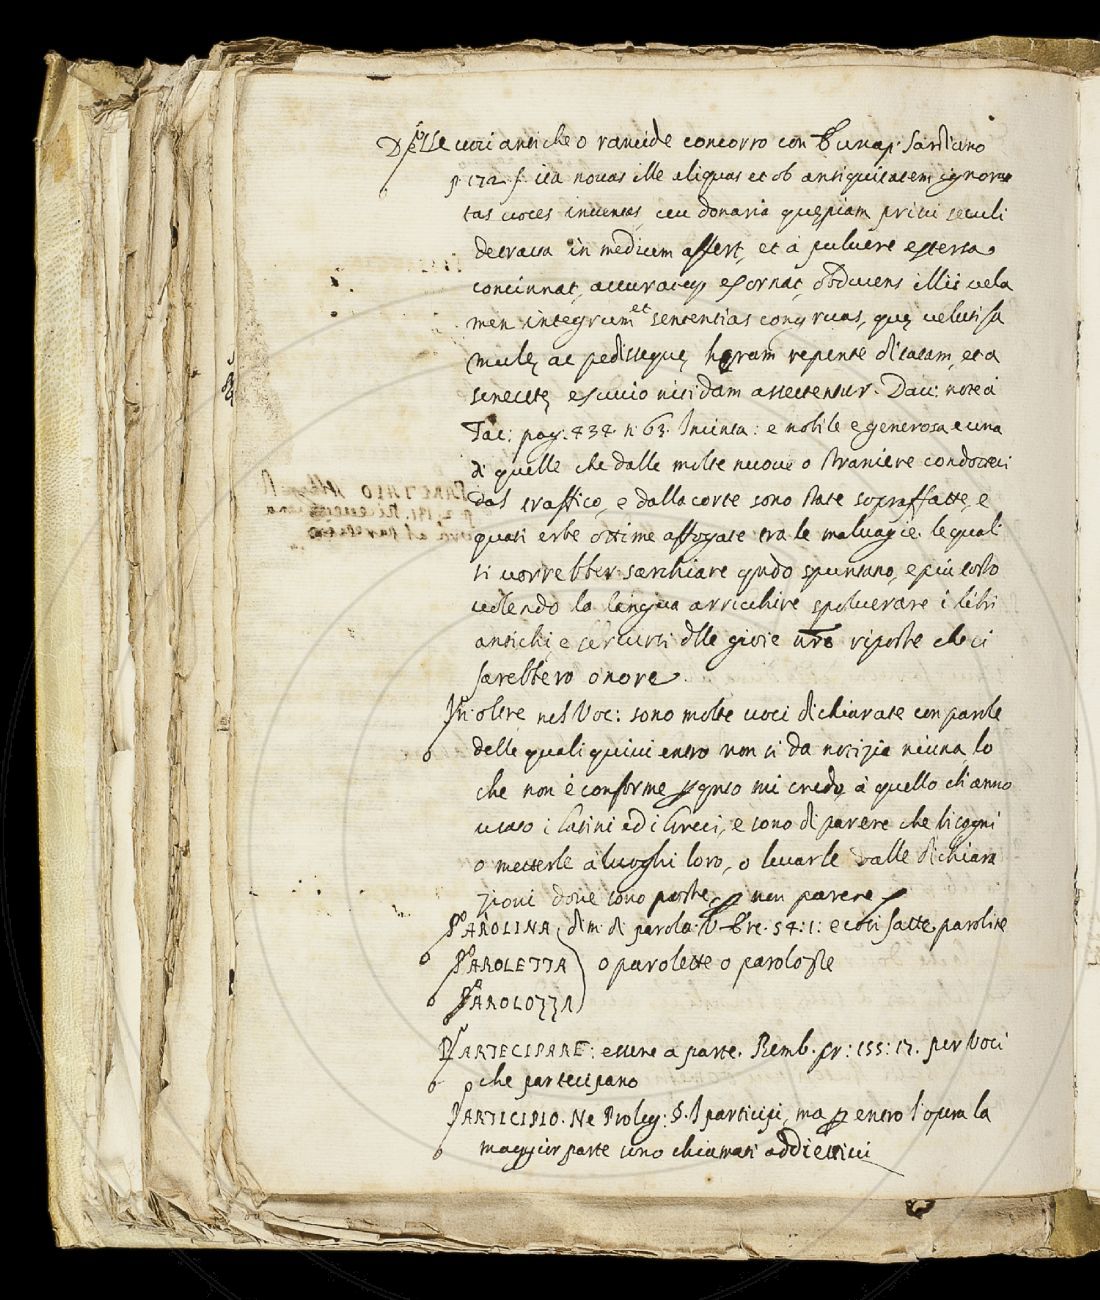 Delle voci antiche o rancide concorro con Eunap. Sardiano
p. 172. f. ita novas ille aliquas et ob antiquitatem ignora
tas voces inventas, ceu donaria quępiam prisci seculi
detracta in medium affert, et a pulvere extersa
concinnat, accurateq exornat, obducens illis vela
men integrum et sententias congruas, quę veluti fa
mulę ac pedissequę, repente ditatam, et a
senectę nitidam assectentur. Dav: note à
Tac: pag. 434. n. 63. : e nobile e generosa e una
di quelle che dalle molte nuove o straniere condotteci
dal traffico, e dalla corte sono state sopraffatte, e
quasi erbe ottime affogate tra le malvagie. le quali
si vorrebber sarchiare qndo spuntano, e più tosto
volendo la lingua arricchire spolverare i libri
antichi, e servirsi dlle gioie nre riposte che ci
sarebbero onore.
In oltre nel Voc: sono molte voci dichiarate con parole
delle quali quivi entro non si da notizia niuna, lo
che non è conforme p qnto mi credo, à quello ch'anno
usato i Latini ed i Greci, e sono di parere che bisogni
o metterle a' luoghi loro, o levarle dalle dichiara
zioni dove sono poste, p non parere
PAROLINA dim: di parola. 54:1: e così fatte paroline
PAROLETTA o parolette o parolozze
PAROLOZZA
PARTECIPARE: essere a parte. Bemb. pr: 155: 17. per Voci
che partecipano
PARTICIPIO. Ne Proleg: §. I participi, ma p entro l'opera la
maggior parte sono chiamati addiettivi